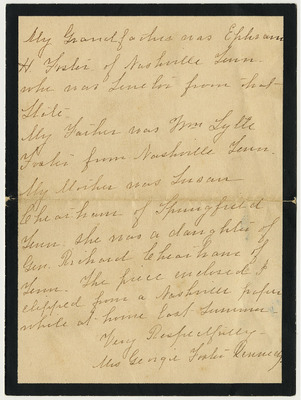 My Grandfather was Ephraim
H. Foster of Nashville Tenn.
who was Senator from that
State.
My Father was Wm Lytle
Foster from Nashville Tenn.
My Mother was Susan
Cheatham of Springfield
Tenn. she was a daughter of
Gen. Richard Cheatham of
Tenn. The piece enclosed I
clipped from a Nashville paper
while at home last Summer
Very Respectfully-
Mrs Georgie Foster Kennedy